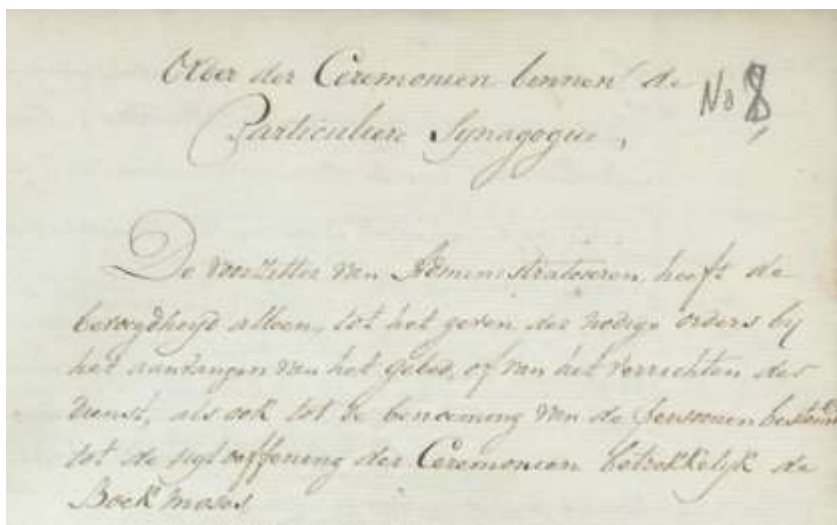 Order der Ceremonien binnen de
Particuliere Synagogue,
No 8
De voorzitter van Administrateuren, heeft de
bevoegdheyd alleen, tot het geven der nodige orders by
het aanvangen van het gebed, of van het verrichten der
dienst, als ook tot de benoeming van de persoonen bestemd
tot de uytoeffening der Ceremonien betrekkelyk de
Boek Moses